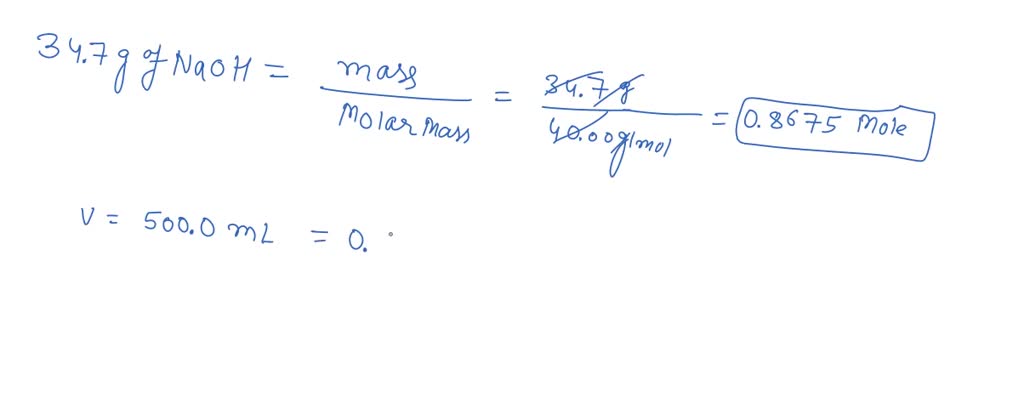 34.7 g of NaOH = mass / Molar Mass = 34.7 g / 40.00 g/mol = 0.8675 Mole
V = 500.0 mL = 0.